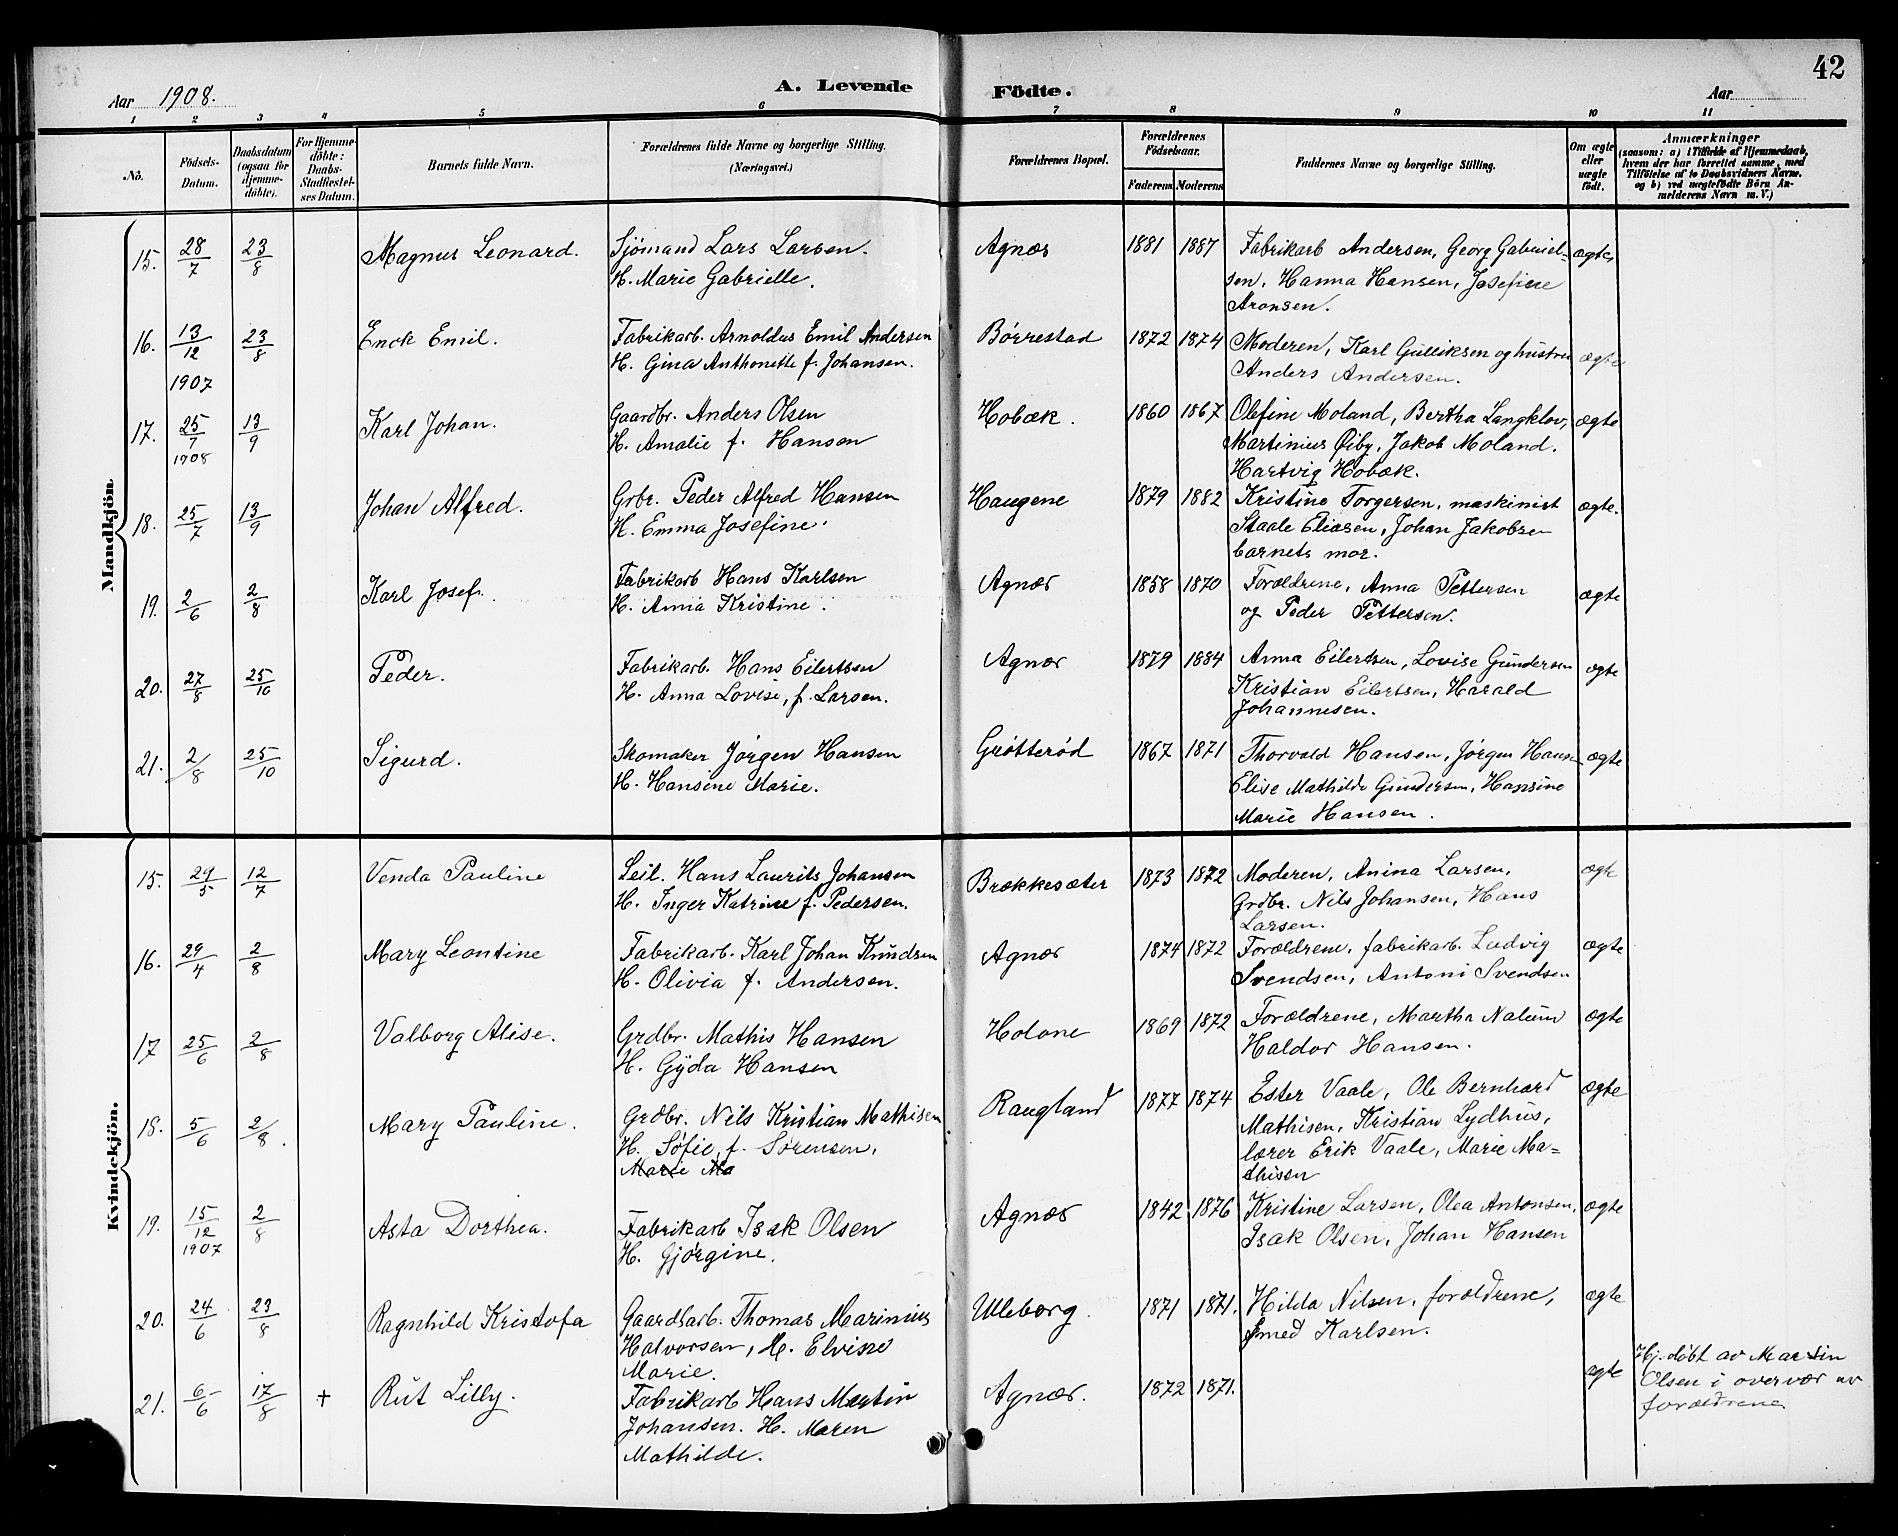 42
Aar 1908. A. Levende Födte. Aar
1 2 3 4 5 6 7 8 9 10 11
No. Födsels-Datum. Daabsdatum (ogsaa for Hjemme-döbte). For Hjemme-döbte: Daabs-Stadfæstel-ses Datum. Barnets fulde Navn. Forældrenes fulde Navne og borgerlige Stilling. (Næringsvei.) Forældrenes Bopæl. Forældrenes Födselsaar. Faderens Moderens Faddernes Navne og borgerlige Stilling. Om ægte eller uægte födt. Anmærkninger (saasom: a) i Tilfælde af Hjemmedaab, hvem der har forrettet samme, med Tilföielse af to Daabsvidners Navne, og b) ved uægtefödte Börn An-melderens Navn m. V.)
Mandkjön.
15. 28/7 23/8 Magnus Leonard. Sjömand Lars Larsen. Agnæs 1881 1887 Fabrikarb Andersen, Georg Gabriel- ægte
H. Marie Gabrielle. sen, Hanna Hansen, Josefine
Aronsen.
16. 13/12 23/8 Emil. Fabrikarb. Arnoldus Emil Andersen Børrestad 1872 1874 Moderen, Karl Gulliksen og hustru ægte
1907 H. Gina Anthonette f. Johansen. Anders Andersen.
17. 25/7 13/9 Karl Johan. Gaardbr. Anders Olsen Hobæk. 1860 1867 Olefine Moland, Bertha Langklov, ægte
1908 H. Amalie f. Hanson Martinius Øiby, Jakob Moland.
Hartvig Hobæk.
18. 25/7 13/9 Johan Alfred. Grbr. Peder Alfred Hansen Haugene 1879 1882 Kristine Torgersen, maskinist ægte.
H. Emma Josefine. Staale Eliasen, Johan Jakobsen
barnets mor.
19. 2/6 2/8 Karl Josef. Fabrikarb Hans Karlsen Agnæs 1858 1870 Forældrene, Anna Pettersen ægte
H. Anna Kristine. og Peder Pettersen.
20. 27/8 25/10 Peder. Fabrikarb. Hans Eilertsen Agnæs 1879 1884 Anna Eilertsen, Lovise Gundersen ægte
H. Anna Lovise, f. Larsen. Kristian Eilertsen, Harald
Johannesen.
21. 2/8 25/10 Sigurd. Skomaker Jørgen Hansen Grøtterød 1867 1871 Thorvald Hansen, Jørgen Hansen ægte
H. Hansine Marie. Elise Mathilde Gundersen, Hansine
Marie Hansen.
Kvindekjön.
15. 29/5 12/7 Venda Pauline Seil. Hans Laurits Johansen Brækkesæter 1873 1872 Moderen, Anina Larsen, ægte
H. Inger Katrine f. Pedersen. Grdbr. Nils Johansen, Hans
Larsen.
16. 29/4 2/8 Mary Leontine Fabrikarb. Karl Johan Knudsen Agnæs 1874 1872 Forældrene, fabrikarb. Ludvig ægte
H. Olivia f. Andersen. Svendsen, Antoni Svendsen
17 25/6 2/8 Valborg Alise. Grdbr. Mathis Hansen Holane 1869 1872 Forældrene, Martha Nalum ægte
H. Gyda Hansen Haldor Hansen.
18. 5/6 2/8. Mary Pauline. Grdbr. Nils Kristian Mathisen Raugland 1877 1874 Ester Vaale, Ole Bernhard ægte
H. Sofie, f. Sørensen, Mathisen, Kristian Lydhus,
Marie Ma lærer Erik Vaale, Marie Ma=
thisen
19. 15/12 2/8 Asta Dorthea. Fabrikarb Isak Olsen Agnæs 1842 1876 Kristine Larsen, Olea Antonsen, ægte
1907 H. Gjørgine. Isak Olsen, Johan Hansen
20. 24/6 23/8 Ragnhild Kristofa Gaardsarb. Thomas Marinius Ulleborg. 1871 1871. Hilda Nilsen, forældrene, ægte
Halvorsen, H. Elvine Smed Karlsen.
Marie.
21. 6/6 17/8 + Rut Lilly. Fabrikarb Hans Martin Agnæs. 1872 1871. ægte Hj. døbt av Martin
Johansen. H. Maren Olsen i overvær av
Mathilde. forældrene